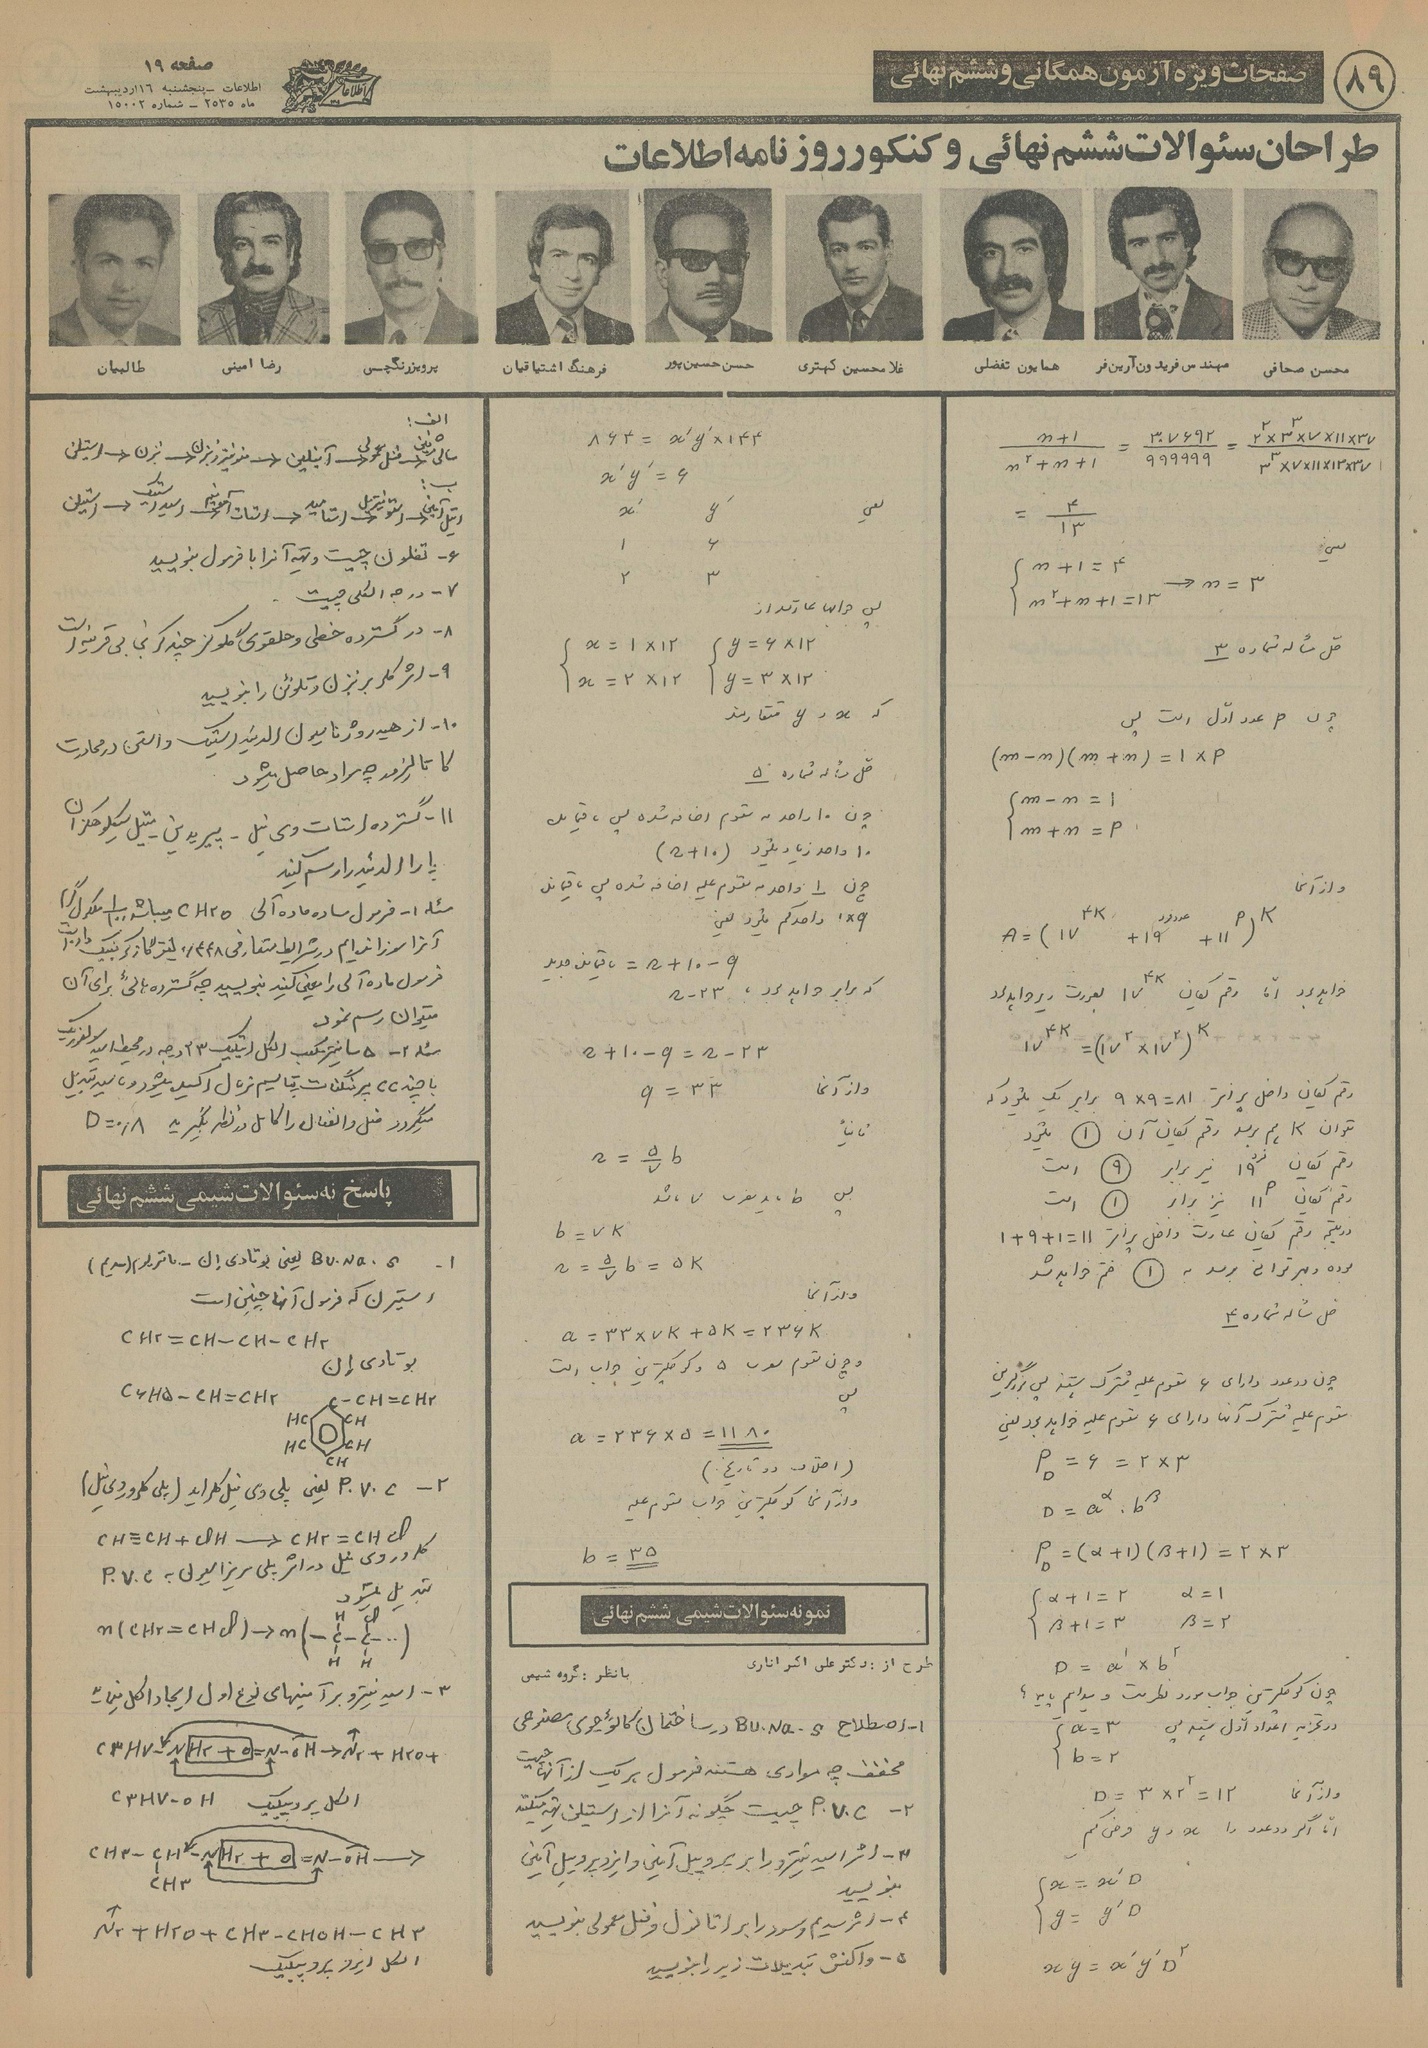 ۸۹
صفحات ویژه آزمون همگانی و ششم نهائی
صفحه ۱۹
اطلاعات ـ پنجشنبه ۱۶ اردیبهشت
ماه ۲۵۳۵ ـ شماره ۱۵۰۰۲
طراحان سئوالات ششم نهائی و کنکور روزنامه اطلاعات
محسن صحافی
مهندس فریدون آرین فر
همایون تفضلی
غلامحسین کهتری
حسن حسین پور
فرهنگ اشتیاقیان
پرویز رنگچسی
رضا امینی
طالبیان
n+۱ / n۲+n+۱ = ۳۰۷۶۹۲ / ۹۹۹۹۹۹ = ۲۲×۳۳×۷×۱۱×۳۷ / ۳۳×۷×۱۱×۱۳×۳۷
= ۴ / ۱۳
یعنی
n+۱=۴
n۲+n+۱=۱۳ → n=۳
حل مسأله شماره ۳
چون p عدد اول است پس
(m-n)(m+n)=۱×p
m-n=۱
m+n=p
و از آنجا
A=(۱۷۴K + ۱۹عدد فرد + ۱۱p)K
خواهد بود اما رقم یکان ۱۷۴K بصورت زیر خواهد بود
۱۷۴K=(۱۷۲×۱۷۲)K
رقم یکان داخل پرانتز ۹×۹=۸۱ برابر یک میشود که
بتوان K هم برسد رقم یکان آن ۱ میشود
رقم یکان ۱۹فرد نیز برابر ۹ است
رقم یکان ۱۱p نیز برابر ۱ است
در نتیجه رقم یکان عبارت داخل پرانتز ۱+۹+۱=۱۱
بوده و بهر توانی برسد به ۱ ختم خواهد شد
حل مسأله شماره ۴
چون دو عدد دارای ۶ مقسوم علیه مشترک هستند پس بزرگترین
مقسوم علیه مشترک آنها دارای ۶ مقسوم علیه خواهد بود یعنی
PD=۶=۲×۳
D=aα.bβ
PD=(α+۱)(β+۱)=۲×۳
α+۱=۲ α=۱
β+۱=۳ β=۲
D=a۱×b۲
چون کوچکترین جواب مورد نظر است و میدانیم باید
در تجزیه اعداد اول هستند پس a=۳
b=۲
و از آنجا D=۳×۲۲=۱۲
اما اگر دو عدد را x و y فرض کنیم
x=x′D
y=y′D
xy=x′y′D۲
۸۶۴=x′y′×۱۴۴
x′y′=۶
یعنی y′ x′
۶ ۱
۳ ۲
پس جوابها عبارتند از
x=۱×۱۲ y=۶×۱۲
x=۲×۱۲ y=۳×۱۲
که x و y متقارنند
حل مسأله شماره ۵
چون ۱۰ واحد به مقسوم اضافه شده پس باقیمانده
۱۰ واحد زیاد میشود (r+۱۰)
چون ۱ واحد به مقسوم علیه اضافه شده پس باقیمانده
۱×q واحد کم میشود یعنی
باقیمانده جدید = r+۱۰-q
که برابر خواهد بود با r-۲۳
r+۱۰-q=r-۲۳
و از آنجا q=۳۳
ثانیاً
r=۵/۷ b
پس b باید مضرب ۷ باشد
b=۷K
r=۵/۷ b=۵K
و از آنجا
a=۳۳×۷K+۵K=۲۳۶K
و چون مقسوم مضرب ۵ و کوچکترین جواب است
پس
a=۲۳۶×۵=۱۱۸۰
و از آنجا کوچکترین جواب مقسوم علیه
b=۳۵
نمونه سئوالات شیمی ششم نهائی
طرح از : دکتر علی اکبر اناری
با نظر : گروه شیمی
۱- اصطلاح BU.Na.S در ساختمان کائوچوی مصنوعی
مخفف چه موادی هستند فرمول هر یک از آنها چیست
۲- P.V.C چیست چگونه آنرا از استیلن تهیه میکنند
۳- اثر اسید نیترو را بر پروپیل آمین و ایزوپروپیل آمین
بنویسید
۴- اثر سدیم و سود را بر اتانول و فنل معمولی بنویسید
۵- واکنش تبدیلات زیر را بنویسید
الف:
استیلن → بنزن → منونیتروبنزن → آنیلین → فنل معمولی →
ب:
استیلن → اسید استیک → استات آمونیم → استامید → استونیتریل → اتیل آمین
۶- تفلون چیست و تهیه آنرا با فرمول بنویسید
۷- درجه الکلی چیست
۸- در گسترده خطی و حلقوی گلوکز چند کربنی بی قرینه است
۹- اثر کلر بر بنزن و تلوئن را بنویسید
۱۰- از هیدروژناسیون الدئید استیک و استن در مجاورت
کاتالیزور چه مواد حاصل میشود
۱۱- گسترده استات وی نیل - پیریدین - متیل سیکلوهگزان
پارا الدئید را رسم کنید
مسئله ۱- فرمول ساده ماده آلی CH۲O میباشد
آنرا سوزانده ایم در شرایط متعارفی ۰/۴۴۸ لیتر گاز کربنیک داده است
فرمول ماده آلی را معین کنید بنویسید چه گسترده هائی برای آن
میتوان رسم نمود
مسئله ۲- ۵ سانتیمتر مکعب الکل اتیلیک ۲۳ درجه در محیط اسید سولفوریک
با چند CC پرمنگنات پتاسیم نرمال اکسید میشود و به اسید تبدیل
میگردد فعل و انفعال را کامل در نظر بگیرید D=۰/۸
پاسخ نه سئوالات شیمی ششم نهائی
۱- BU.Na.S یعنی بوتادی ان - ناتریوم (سدیم)
استیرن که فرمول آنها چنین است
CH۲=CH-CH-CH۲
بوتادی ان
C۶H۵-CH=CH۲ C-CH=CH۲
HC CH
HC CH
CH
۲- P.V.C یعنی پلی وی نیل کلراید (پلی کلرور وی نیل)
CH≡CH+ClH → CH۲=CHCl
کلرور وی نیل در اثر پلی مریزاسیون به P.V.C
تبدیل میشود
n(CH۲=CHCl) → n(-C-C-..)
H Cl
H H
۳- اسید نیترو بر آمینهای نوع اول ایجاد الکل مینماید
C۳H۷-NH۲+O=N-OH → N۲+H۲O+
C۳H۷-OH الکل پروپیلیک
CH۳-CH-NH۲+O=N-OH →
CH۳
N۲+H۲O+CH۳-CHOH-CH۳
الکل ایزوپروپیلیک